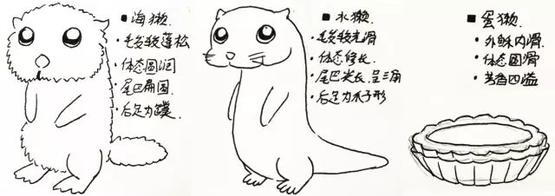 ■ 海獭.
• 毛发较蓬松
• 体态圆润
• 尾巴扁圆.
• 后足为蹼
■ 水獭.
• 毛发较光滑
• 体态修长.
• 尾巴尖长.呈三角
• 后足为爪子形
■ 蛋獭.
• 外酥内滑.
• 体态圆滑
• 芳香四溢